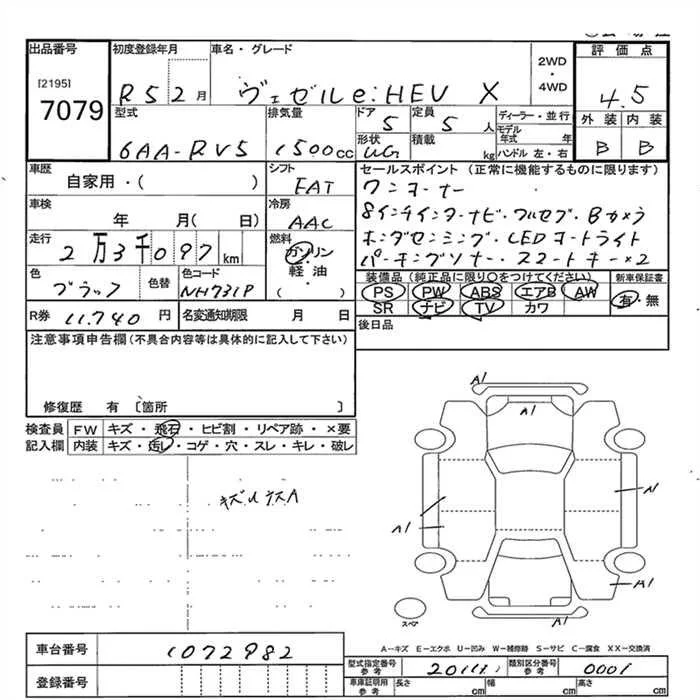 出品番号 初度登録年月 車名・グレード 2WD・4WD 評価点
[2195]
7079
R5 2月 ヴェゼル e:HEV X 4.5
型式 排気量 ドア 定員 ディーラー・並行 外装 内装
6AA-RV5 1500cc 5 5人 モデル年式 年 B B
形状 積載 ハンドル 左・右
WG kg
車歴 シフト セールスポイント (正常に機能するものに限ります)
自家用・( ) FAT ワンオーナー
車検 冷房 8インチインターナビ・フルセグ・Bカメラ
年 月( 日) AAC ホンダセンシング・LEDヘッドライト
走行 燃料 パーキングソナー・スマートキー×2
2万3千097km ガソリン・軽油・( )
色 色替 色コード 装備品 (純正品に限り○をつけてください) 新車保証書
ブラック NH731P PS PW ABS エアB AW 有・無
SR ナビ TV カワ
R券 11,740円 名変通知期限 月 日 後日品
注意事項申告欄 (不具合内容等は具体的に記入して下さい)
修復歴 有 〔箇所 〕
検査員記入欄 FW キズ・飛石・ヒビ割・リペア跡・×要
内装 キズ・汚レ・コゲ・穴・スレ・キレ・破レ
A1
A1
A1
A1
A1
A1
スペア
A-キズ E-エクボ U-凹み W-補修跡 S-サビ C-腐食 XX-交換済
車台番号 1072982
型式指定番号 参考 類別区分番号 参考 0001
登録番号 車庫証明用 参考 長さ cm 幅 cm 高さ cm